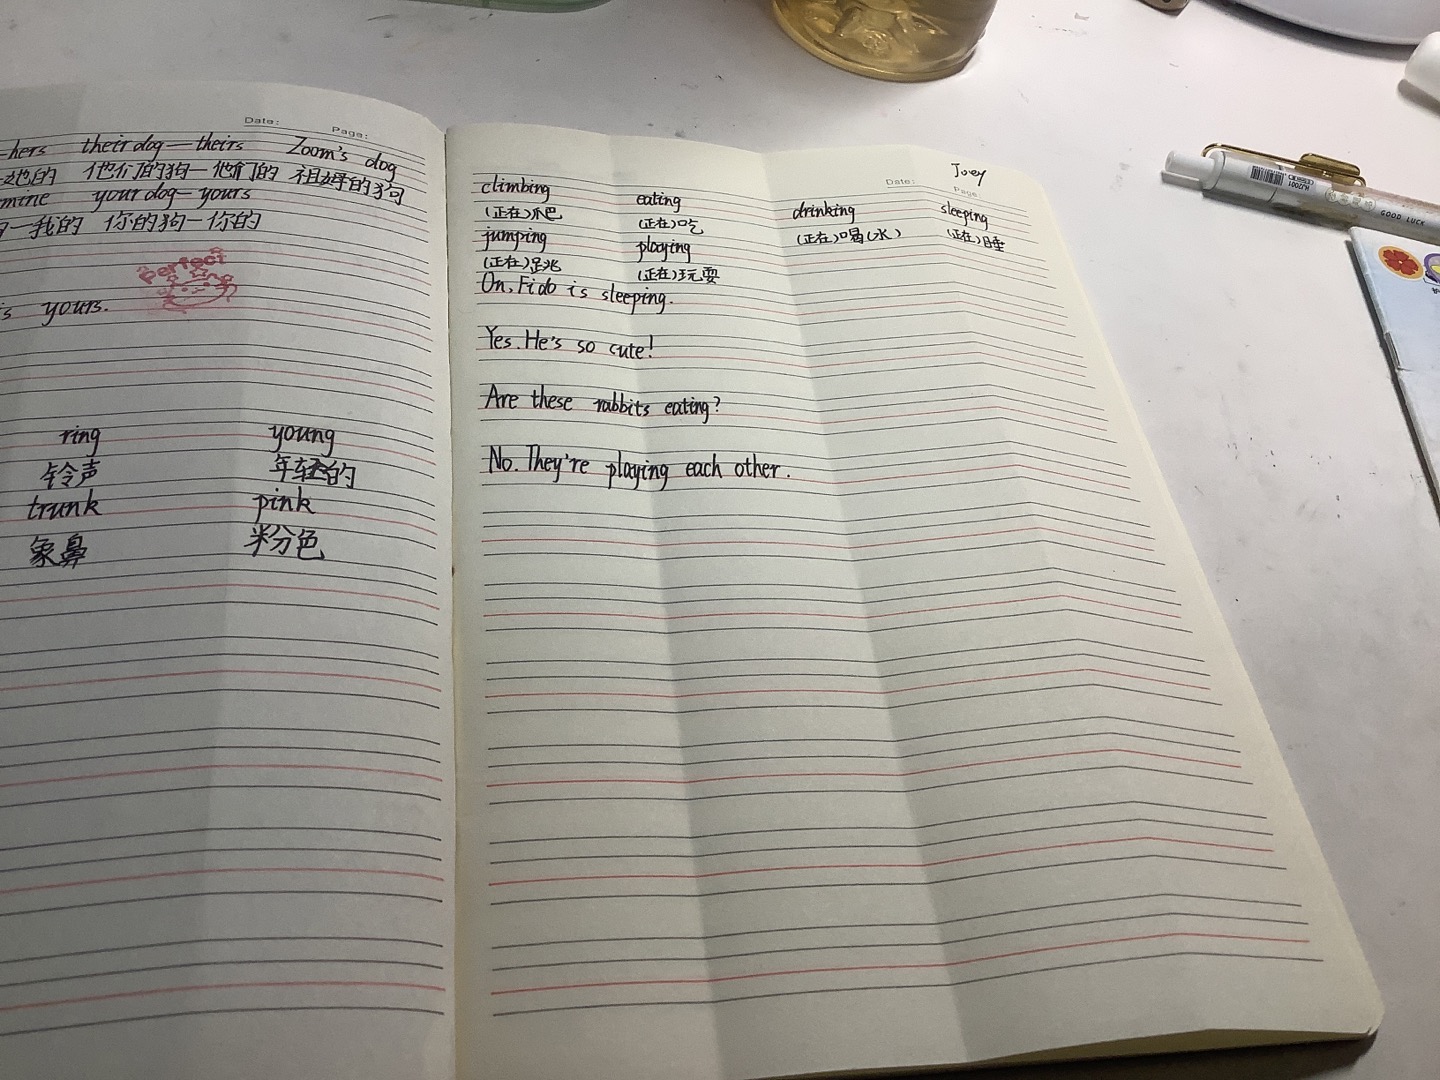 Date: Page:
hers their dog—theirs Zoom's dog
她的 他们的狗—他们的 祖姆的狗
mine your dog—yours
一我的 你的狗—你的
Perfect
yours.
ring young
铃声 年轻的
trunk pink
象鼻 粉色
Joey
Date: Page:
climbing eating drinking sleeping
(正在)爬 (正在)吃 (正在)喝(水) (正在)睡
jumping playing
(正在)跳 (正在)玩耍
On, Fido is sleeping.
Yes. He's so cute!
Are these rabbits eating?
No. They're playing each other.
KJ2001
GOOD LUCK